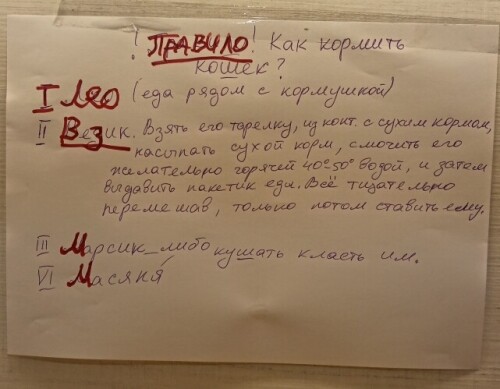 ! ПРАВИЛО! Как кормить
кошек?
I Лео (еда рядом с кормушкой)
II Везик. Взять его тарелку, из конт. с сухим кормом,
насыпать сухой корм, смочить его
желательно горячей 40°-50° водой, и затем
выдавить пакетик еды. Всё тщательно
перемешав, только потом ставить ему.
III Марсик_либо кушать класть им.
VI Масяня